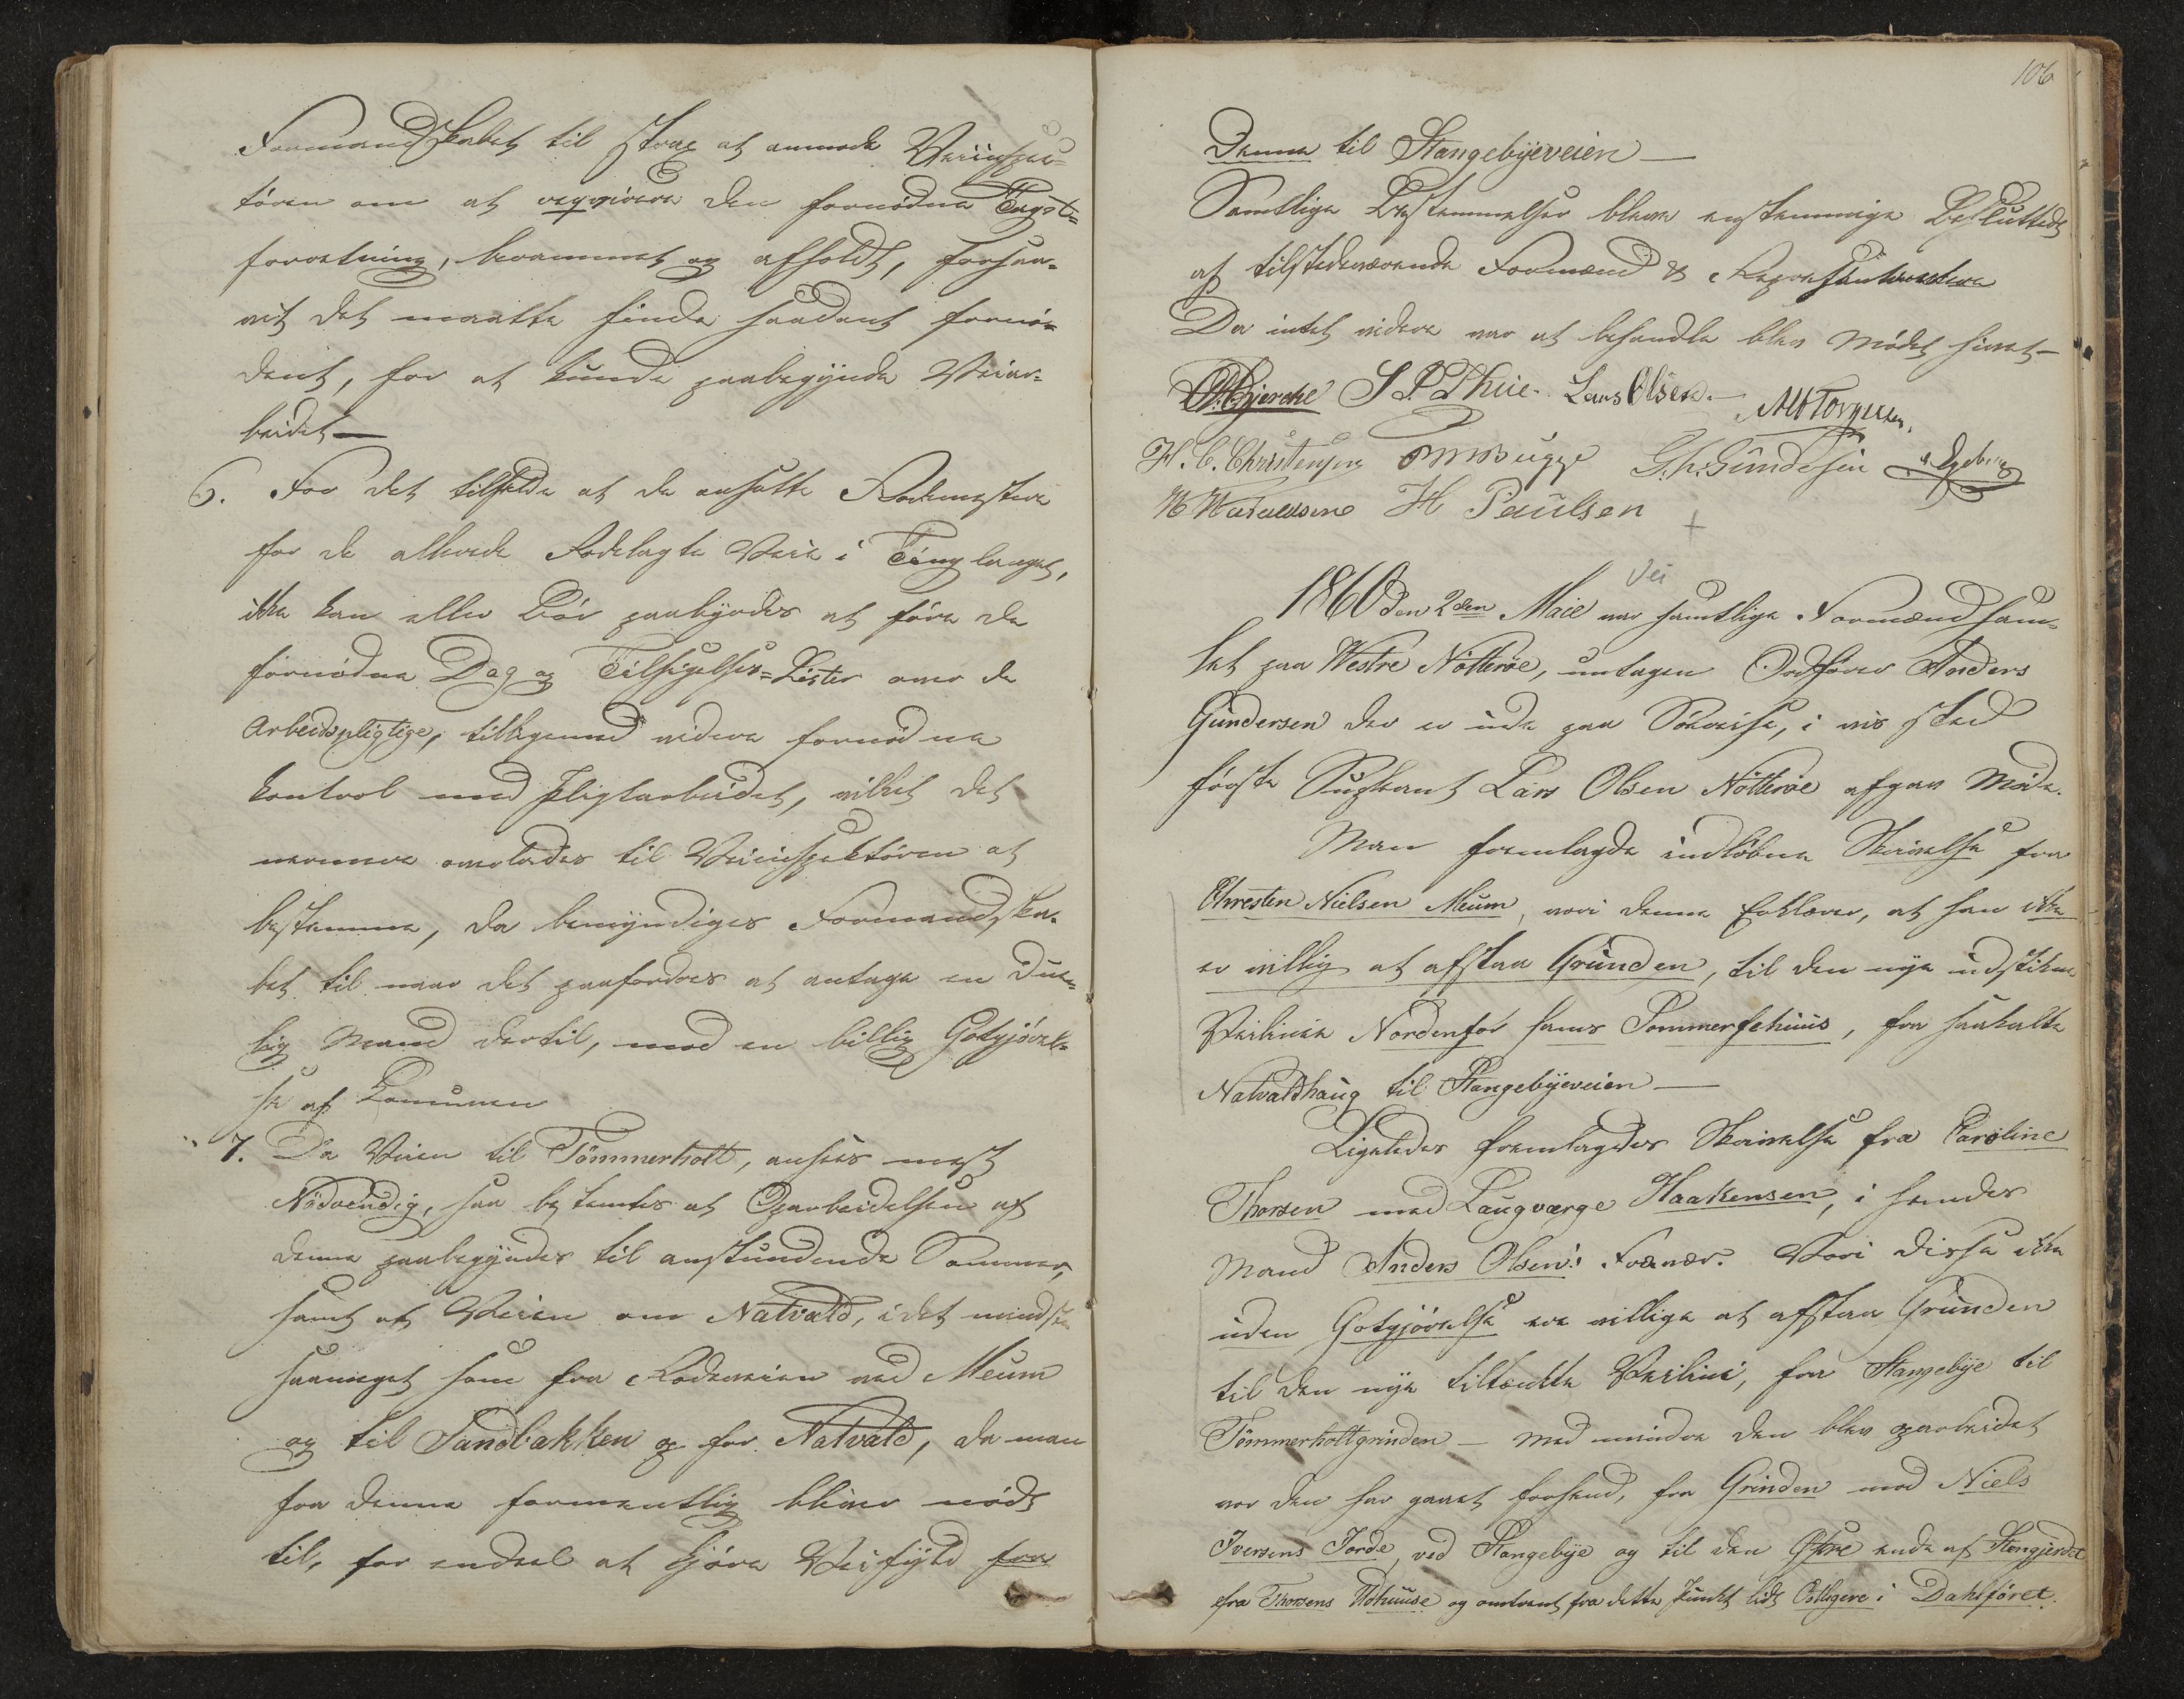 Formandskabet til strax at anmode Veiinspec-
tören om at reqvirere den fornödne Taxt-
forretning, berammet og afholdt, forsaa-
vit det maatte finde saadant fornö-
dent, for at kunde paabegynde Veiar-
beidet —
6. For det tilfælde at de ansatte Rodemestere
for de allerede Rodelagte Veie i Tinglauget,
ikke kan eller bör paabyrdes at före de
fornödne Dag og Tilsigelses=Lister over de
Arbeidspligtige, tilligemed videre fornödne
kontrol med Pligtarbeidet, vilket det
nermere overlades til Veiinspektören at
bestemme, da bemyndiges Formandska-
bet til naar det paafordres at antage en Due-
lig Mand dertil, mod en billig Gotgjörel-
se af Comunen
7. Da Veien til Tömmerholt, ansees mest
Nödvendig, saa bestemtes at Oparbeidelsen af
denne paabegyndes til anstundende Sommer,
samt at Veien om Natvald, i det mindste
saameget som fra Rodeveien ved Meum
og til Sandbakken og for Natvald, da man
fra denne formentlig bliver nöds
til, for endeel at Gjöre Veifyld fra
106
Denne til Stangebyeveien —
Samtlige Bestemmelser bleve enstemmige Besluttede
af tilstedeværende Formænd & Repræsentantere
Da intet videre var at behandle blev Mödet hævet —
Bjercke S. P. Thue. Lars Olsen. — A M Torgersen,
H. C. Christensen OM Bugge G. h: Gundesen Egeberg
H Paulsen
Vei
1860 den 2den Maie var samtlige Formænd sam-
let paa Westre Nötteröe, untagen Ordförer Anders
Gundersen der er ude paa Söreise, i vis sted
förste Suplant Lars Olsen Nötteröe afgav Möde.
Man fremlagde indlöbne Skrivelse fra
Chresten Nielsen Meum, vori denne Erklærer, at han ikke
er villig at afstaa Grunden, til den nye udstikne
Veilinie Nordenfor hans Sommerfehuus, fra saakalte
Natvaldhaug til Stangebyeveien —
Ligeledes fremlagdes Skrivelse fra Caroline
Thorsen med Laugværge Haakensen, i hendes
Mand Anders Olsens Fravær. Vori disse ikke
uden Gotgjörelse ere villige at afstaa Grunden
til den nye tiltænkte Veilinie, fra Stangebye til
Tömmerholtgrinden — med mindre den blev oparbeidet
vor den har gaaet forhend, fra Grinden mod Niels
Iversens Jorde, ved Stangebye og til den Östre ende af Stengjerdet
fra Thorsens Udhuuse og omtrent fra dette Punkt lidt Östligere i Dahlföret.